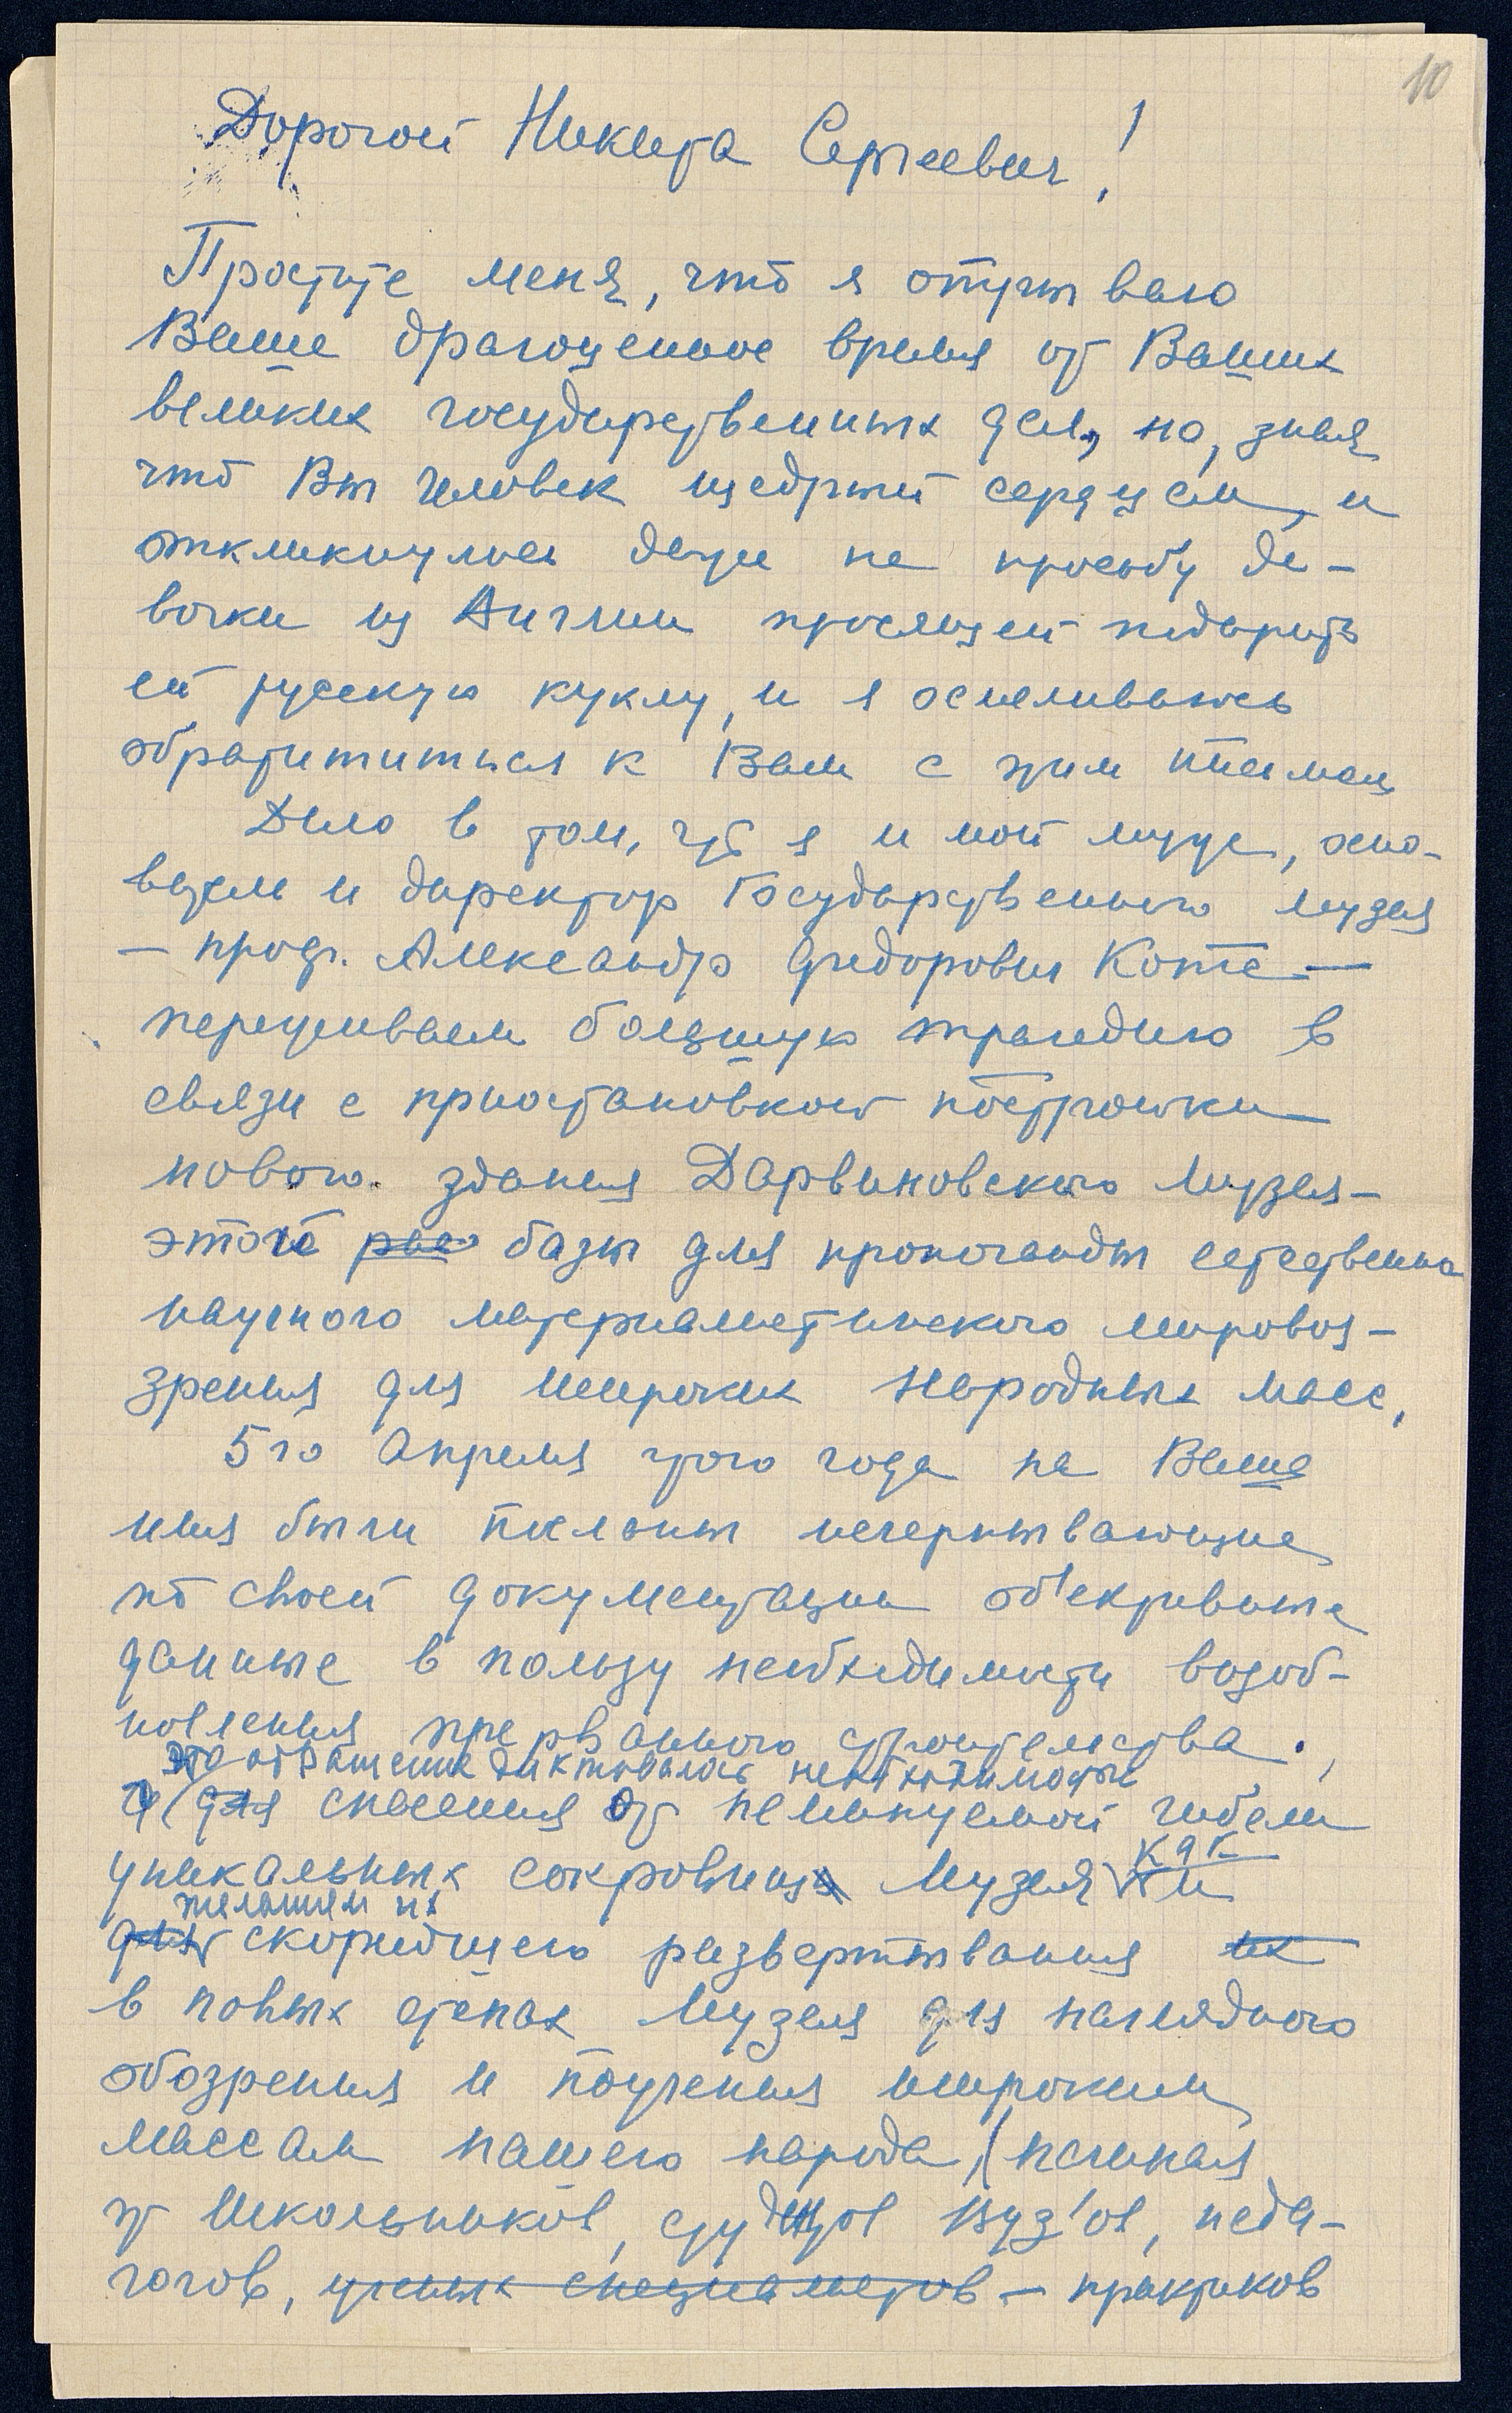 10
Дорогой Никита Сергеевич!
Простите меня, что я отрываю
Ваше драгоценное время от Ваших
великих государственных дел, но, зная
что Вы человек щедрый сердцем, и
откликнулись даже на просьбу де-
вочки из Англии просящей подарить
ей русскую куклу, и я осмеливаюсь
обратиться к Вам с этим письмом
Дело в том, что я и мой муж, осно-
ватель и директор Государственного музея
— проф. Александр Федорович Котс —
переживаем большую трагедию в
связи с приостановкой постройки
нового здания Дарвиновского Музея —
этой базы для пропоганды естественно
научного материалистического мировоз-
зрения для широких народных масс,
5го апреля этого года на Ваше
имя были посланы исчерпывающие
по своей документации об'ективные
данные в пользу необходимости возоб-
новления прерванного строительства.,
это обращение диктовалось необходимостью
для спасения от неминуемой гибели
уникальных сокровищ Музея как и
желанием их
для скорейшего развертывания их
в новых стенах Музея для наглядного
обозрения и поучения широким
массам нашего народа, (начиная
от школьников, студентов Вуз'ов, педа-
гогов, ученых специалистов — практиков